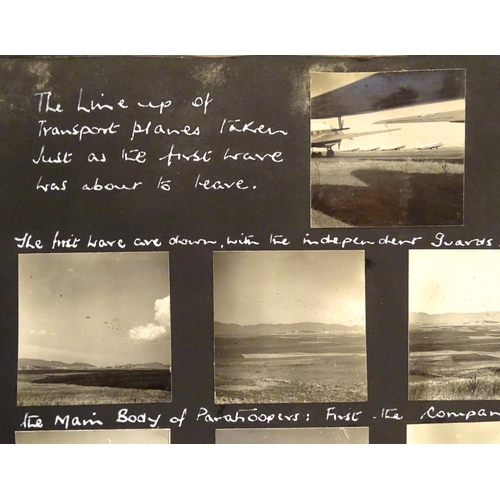 The Line up of
Transport planes taken
Just as the first wave
was about to leave.
The first wave are down, with the independent Guards.
the Main Body of Paratroopers: First the Compan